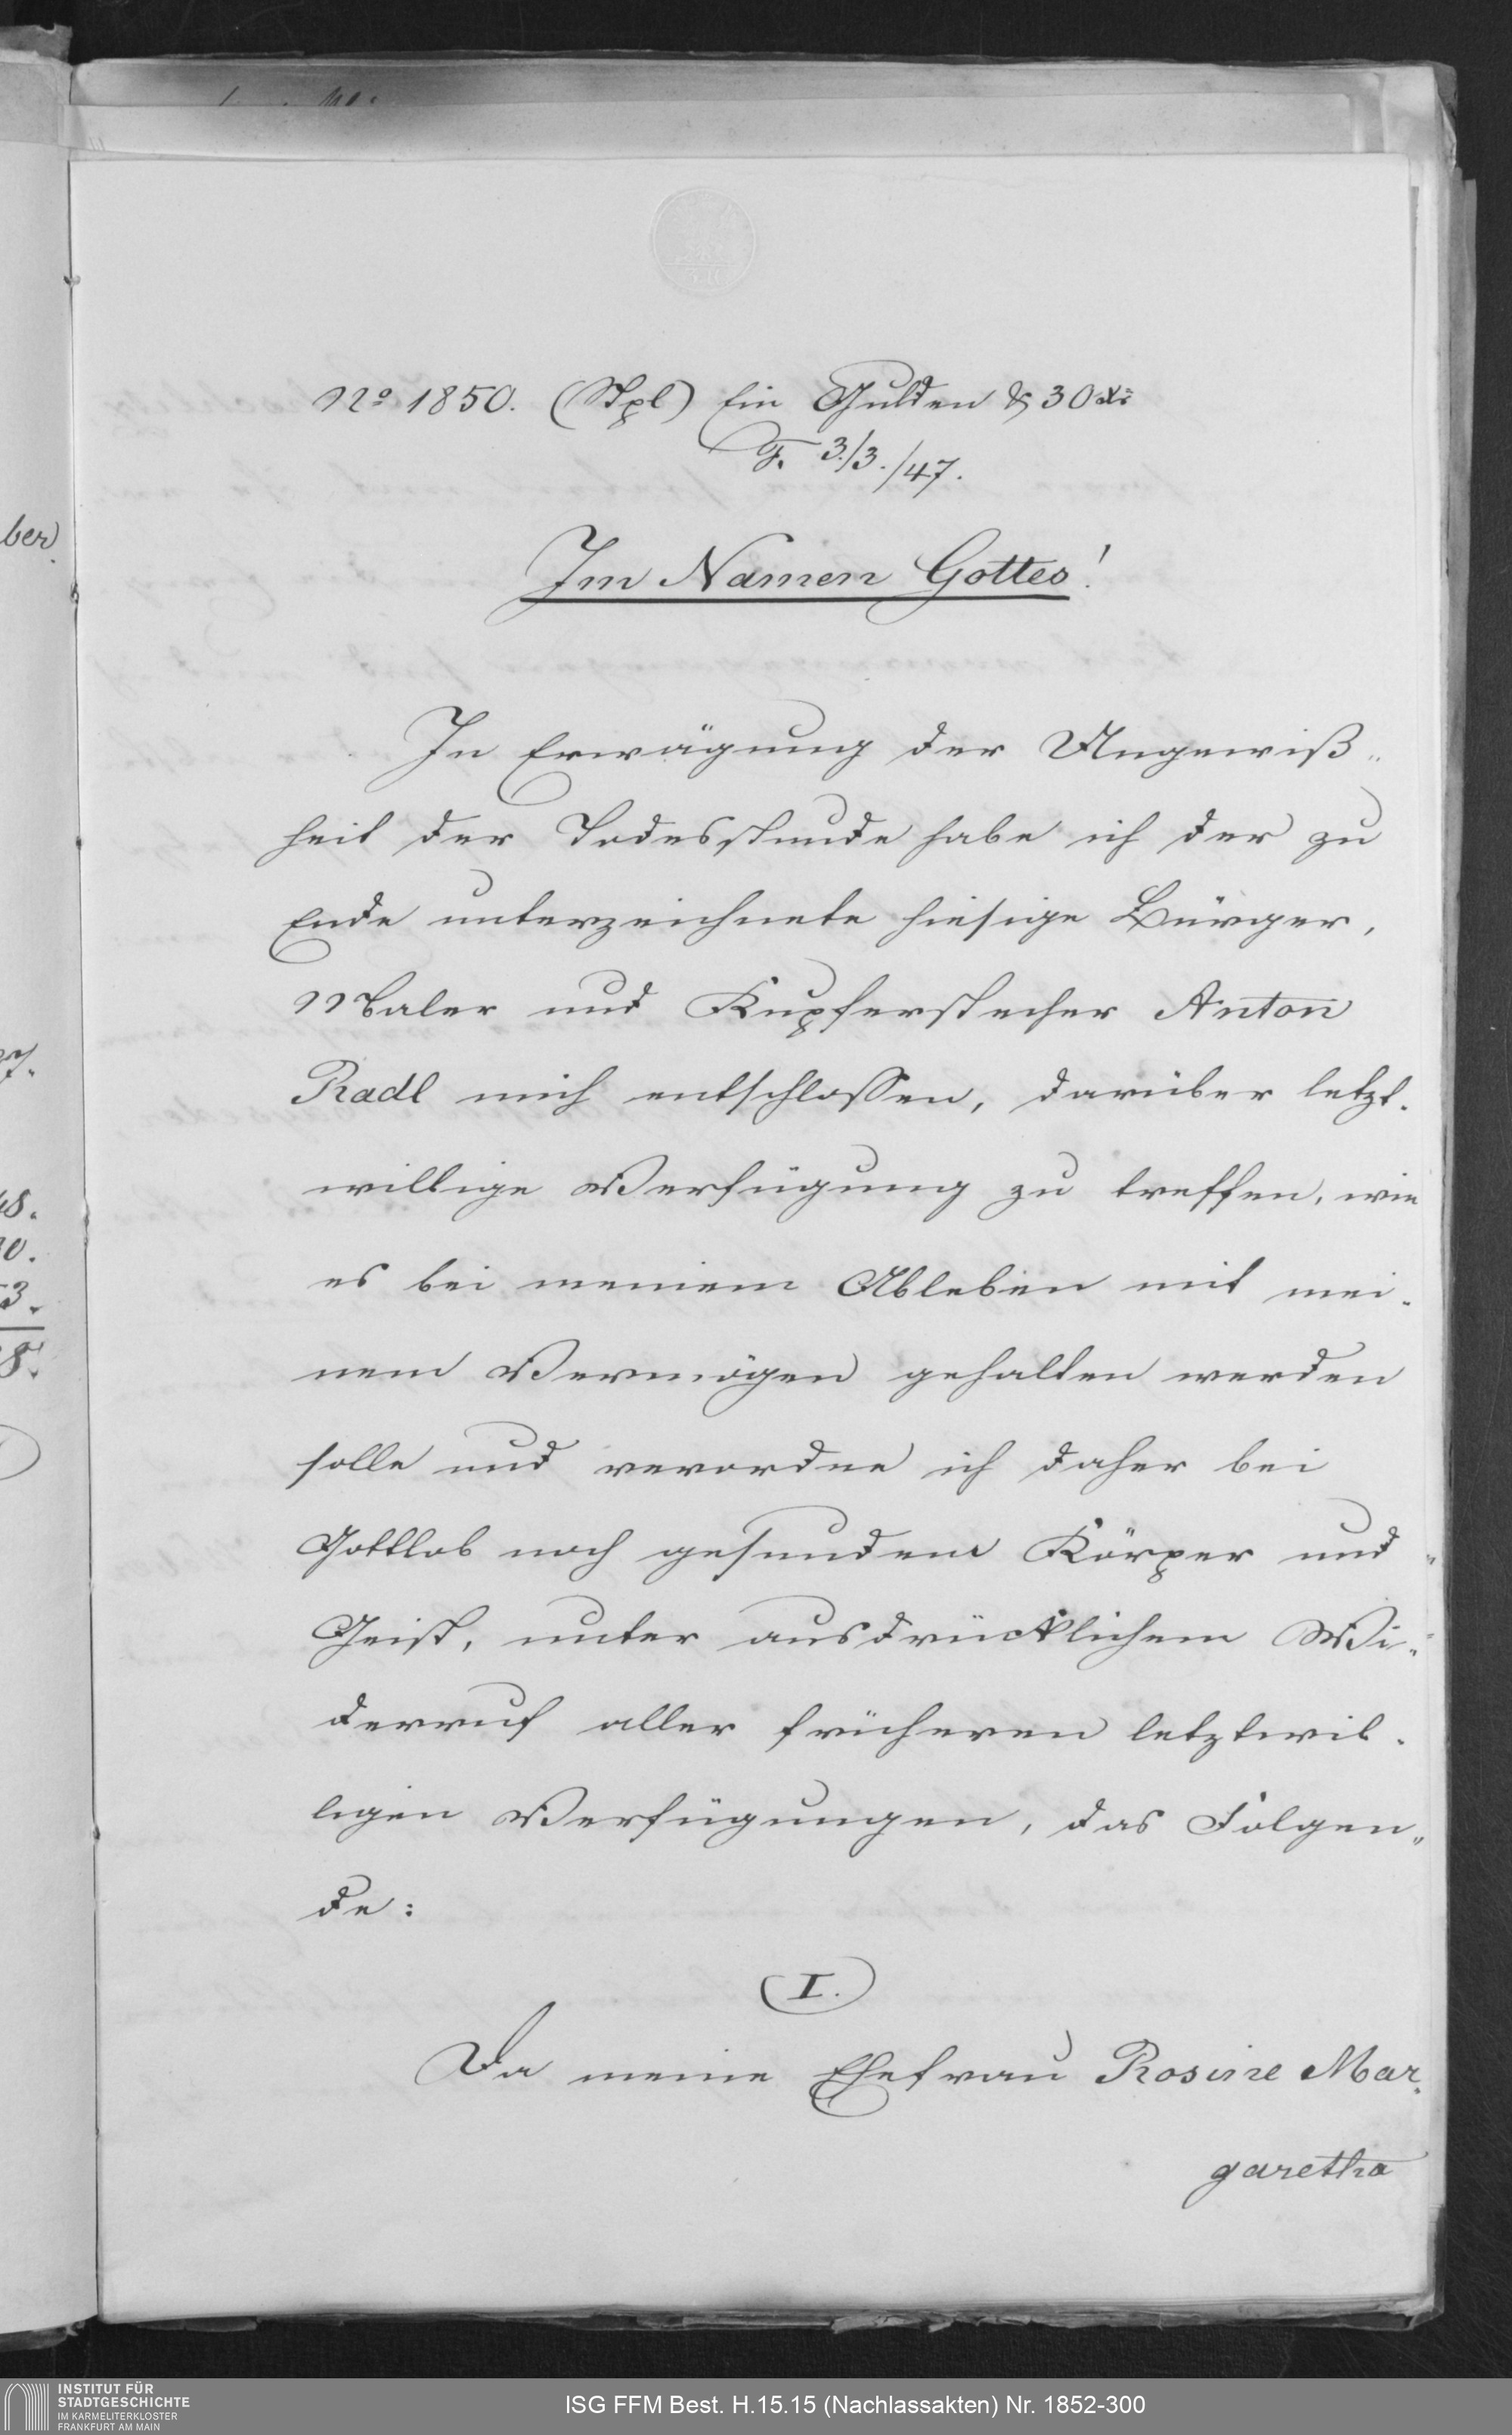 No 1850. (Stpl) Ein Gulden & 30 xr
F. 3./3./47.
Im Namen Gottes!
In Erwägung der Ungewiß„
heit der Todesstunde habe ich der zu
Ende unterzeichnete hiesige Bürger,
Maler und Kupferstecher Anton
Radl mich entschlossen, darüber letzt-
willige Verfügung zu treffen, wie
es bei meinem Ableben mit mei-
nem Vermögen gehalten werden
solle und verordne ich daher bei
Gottlob noch gesundem Körper und
Geist, unter ausdrücklichem Wi-
derruf aller früheren letztwil-
ligen Verfügungen, das Folgen„
de:
I.
Da meine Ehefrau Rosine Mar-
garetha
ber
37.
48.
30.
53.
8.
INSTITUT FÜR
STADTGESCHICHTE
IM KARMELITERKLOSTER
FRANKFURT AM MAIN
ISG FFM Best. H.15.15 (Nachlassakten) Nr. 1852-300